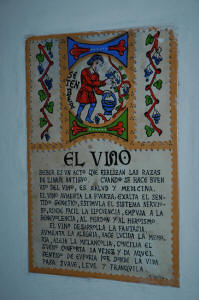 SETENIL
EL VINO
BEBER ES UN ACTO QUE REALIZAN LAS RAZAS
DE LINAJE ANTIGUO. CUANDO SE HACE BUEN
USO DEL VINO, ES SALUD Y MEDICINA.
EL VINO AUMENTA LA FUERZA, EXALTA EL SEN-
TIDO GENETICO, ESTIMULA EL SISTEMA NERVIO-
SO, HACE FACIL LA ELOCUENCIA, EMPUJA A LA
BENEVOLENCIA, AL PERDON Y AL HEROISMO.
EL VINO DESARROLLA LA FANTASIA,
AUMENTA LA ALEGRIA, HACE LUCIDA LA MEMO-
RIA, ALEJA LA MELANCOLIA, CONCILIA EL
SUEÑO, CONFORTA LA VEJEZ Y DA AQUEL
SENTIDO DE EUFORIA POR DONDE LA VIDA
PASA SUAVE, LEVE Y TRANQUILA.